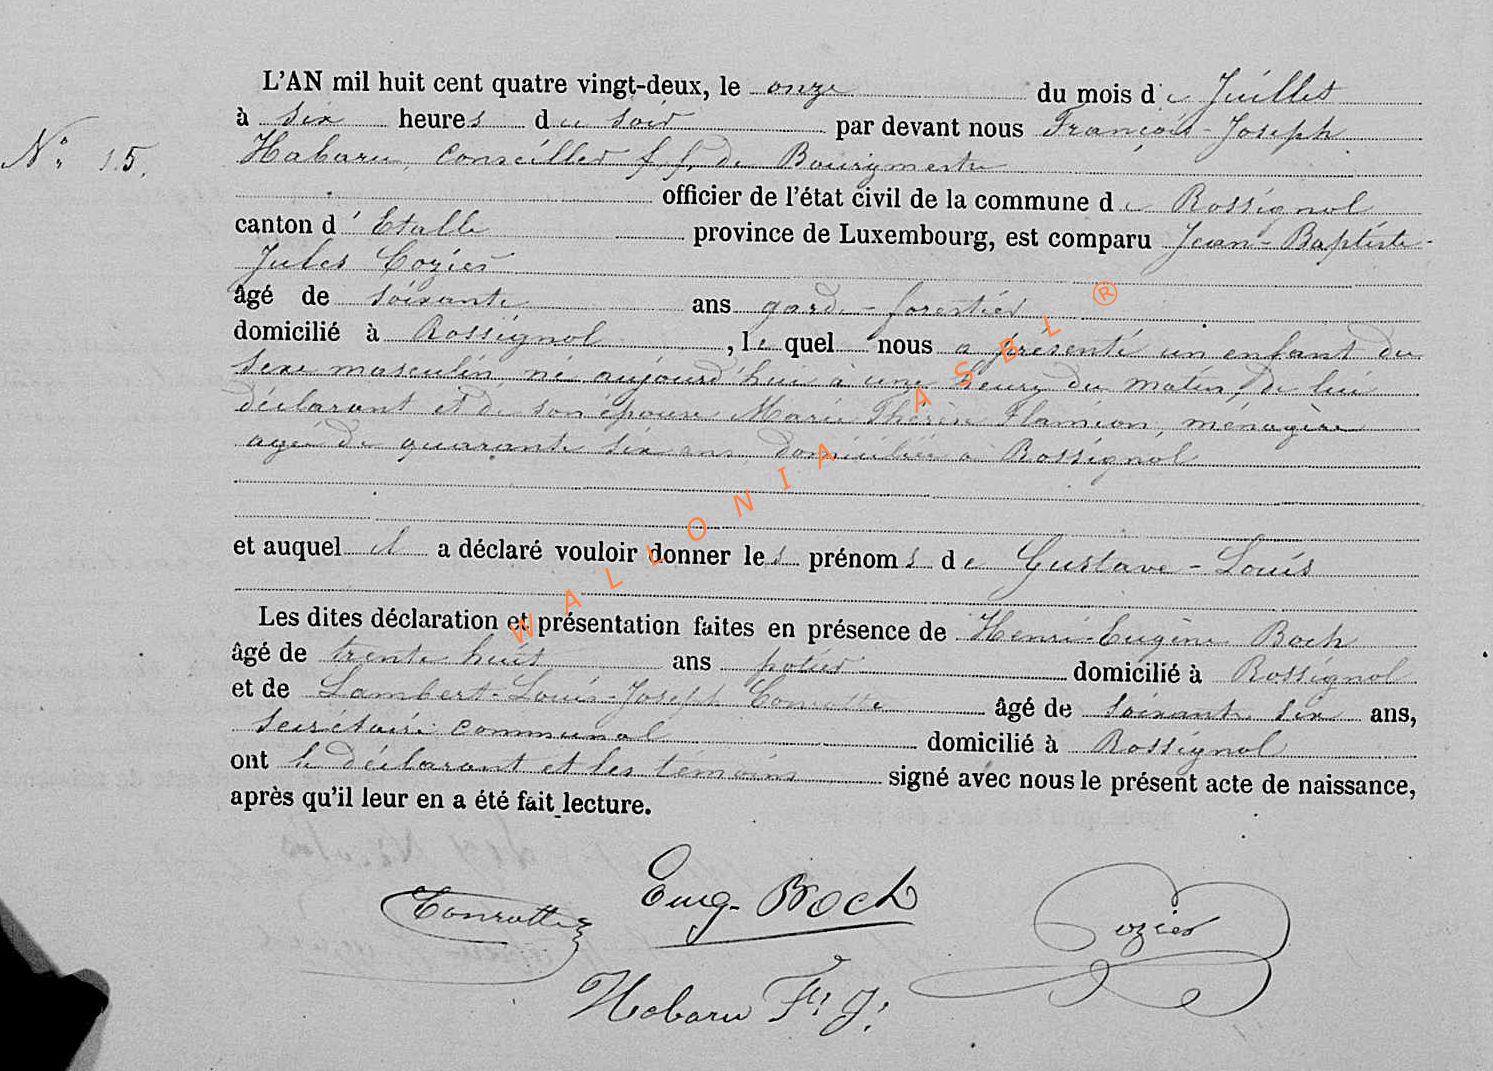 L'AN mil huit cent quatre vingt-deux, le onze du mois de Juillet
à six heures du soir par devant nous François-Joseph
Nº 15.
Habaru, Conseiller f. f. de Bourgmestre
officier de l'état civil de la commune de Rossignol
canton d'Etalle province de Luxembourg, est comparu Jean-Baptiste-
Jules Cozier
âgé de soixante ans garde-forestier
domicilié à Rossignol, le quel nous a présenté un enfant du
sexe masculin né aujourd'hui à une heure du matin, de lui
déclarant et de son épouse Marie Thérèse Flamion, ménagère
agée de quarante six ans, domiciliée à Rossignol
et auquel il a déclaré vouloir donner les prénoms de Gustave-Louis
Les dites déclaration et présentation faites en présence de Henri-Eugène Boch
âgé de trente huit ans potier domicilié à Rossignol
et de Lambert-Louis-Joseph Conrotte âgé de soixante six ans,
secrétaire communal domicilié à Rossignol
ont le déclarant et les témoins signé avec nous le présent acte de naissance,
après qu'il leur en a été fait lecture.
Conrotte Eug. Boch Cozier
Habaru Fs J.
WALLONIA ASBL ®